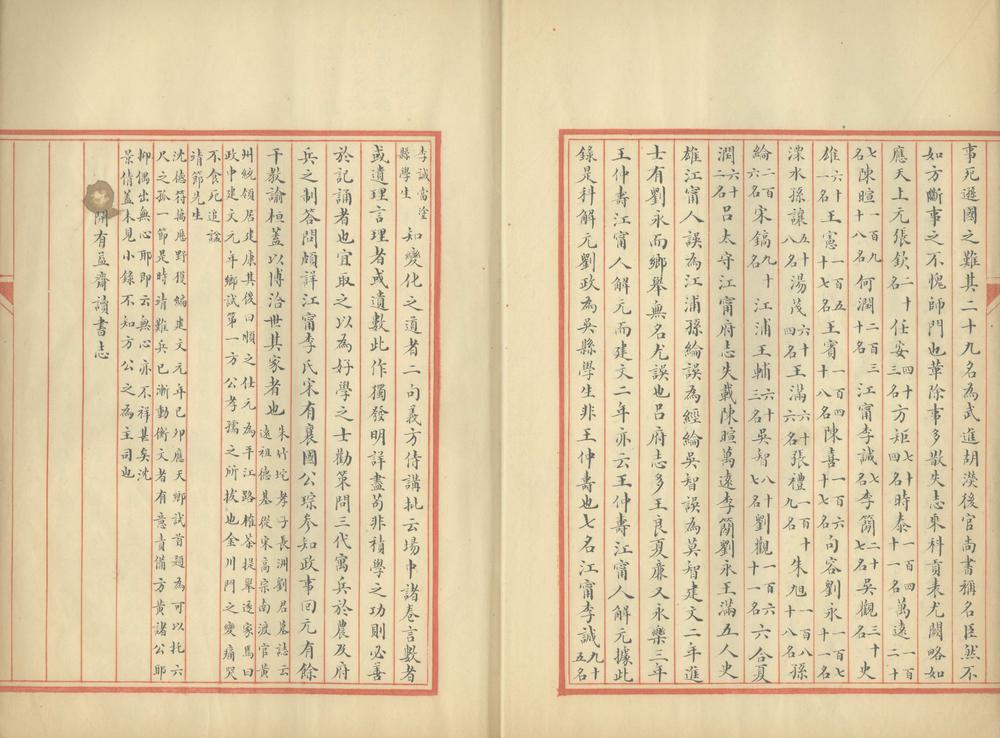 事死遜國之難其二十九名為武進胡濙後官尚書稱名臣然不
如方斷事之不愧師門也革除事多散失志乘科貢表尤闕略如
應天上元張欽二十名任安四十三名方矩七十四名時泰一百四十一名萬遠一百二十
七名陳暄一百九十八名何潤二百三十名江甯李誠名李簡二十七名吳觀三十七名史
雄六十一名王憲一百五十七名王賓一百四十八名陳喜一百六十七名句容劉永一百七十一名
溧水孫讓五十八名湯茂六十四名王滿六十六名張禮一百十九名朱旭一百八十八名孫
綸二百六名宋鎬九十名江浦王輔六十三名吳智八十七名劉觀一百六十一名六合夏
潤六十二名呂太守江甯府志失載陳暄萬遠李簡劉永王滿五人史
雄江甯人誤為江浦孫綸誤為經綸吳智誤為莫智建文二年進
士有劉永而鄉舉無名尤誤也呂府志多王良夏廉又永樂三年
王仲壽江甯人解元而建文二年亦云王仲壽江甯人解元據此
錄是科解元劉政為吳縣學生非王仲壽也七名江甯李誠九十五名
李誠當塗縣學生知變化之道者二句義方侍講批云場中諸卷言數者
或遺理言理者或遺數此作獨發明詳盡苟非積學之功則必善
於記誦者也宜取之以為好學之士勸策問三代寓兵於農及府
兵之制答問頗詳江甯李氏宋有襄國公琮參知政事回元有餘
干教諭桓蓋以博洽世其家者也朱竹垞孝子長洲劉君墓誌云遠祖德基從宋高宗南渡官黃
州統領居建康其後曰順之仕元為平江路榷茶提舉遂家焉曰
政中建文元年鄉試第一方公孝孺之所拔也金川門之變痛哭
不食死追諡
靖節先生
沈德符萬應野獲編建文元年己卯應天鄉試首題為可以托六
尺之孤一節是時靖難兵已漸動衡文者有意責備方黃諸公耶
抑偶出無心耶即云無心亦不祥甚矣沈
景倩蓋未見小錄不知方公之為主司也
開有益齋讀書志